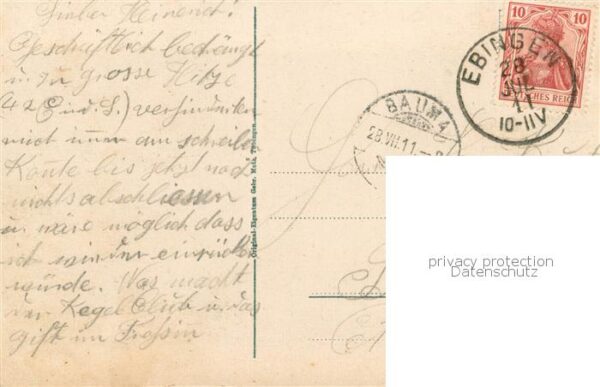 Lieber Heinrich!
Geschäftlich bedrängt
u. zu grosse Hitze
(42 C in d. S.) verhinderten
mich immer am schreiben
Konnte bis jetzt noch
nichts abschliessen
u. wäre möglich dass
ich wieder einrücken
würde. Was macht
der Kegel Club u. das
gift im
Original-Eigentum Gebr. Metz, Tübingen.
BAUMA
28.VII.11.
10 10
EBINGEN
28
JUL
11
10-11V
CHES REICH
privacy protection
Datenschutz